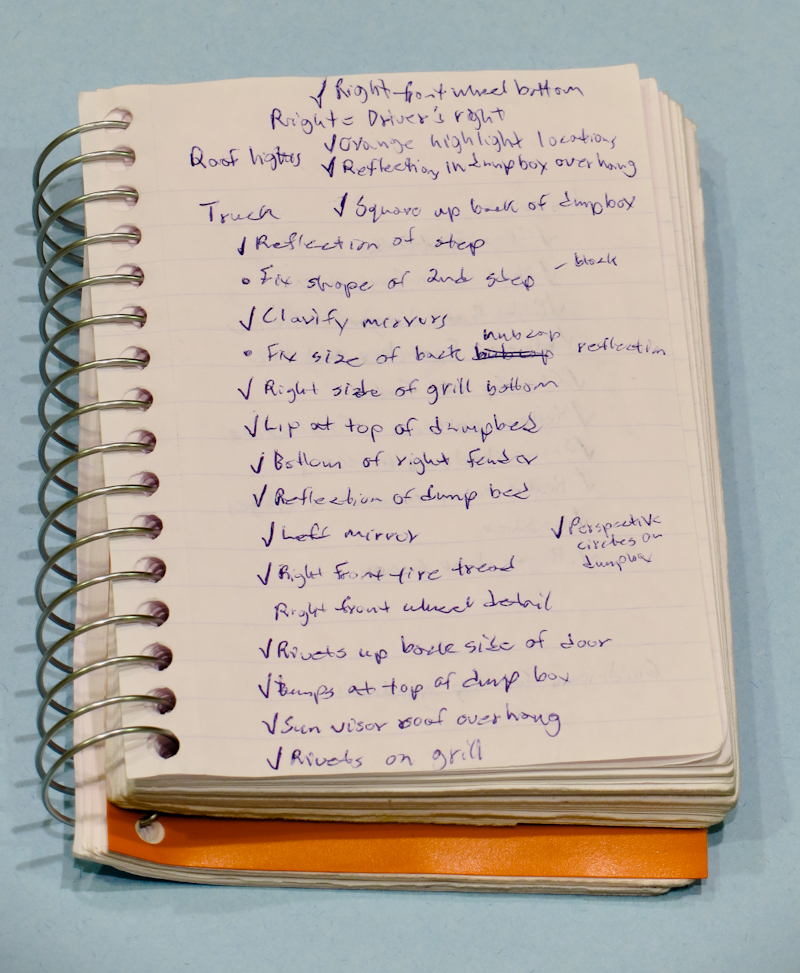 ✓ Right front wheel bottom
Right = Driver's right
✓ Orange highlight locations
Roof lights ✓ Reflection in dumpbox overhang
Truck ✓ Square up back of dumpbox
✓ Reflection of step
• Fix shape of 2nd step – black
✓ Clarify mirrors
hubcap
• Fix size of back hubcap reflection
✓ Right side of grill bottom
✓ Lip at top of dumpbed
✓ Bottom of right fender
✓ Reflection of dump bed
✓ Left mirror
✓ Perspective
circles on
dumpbox
✓ Right front tire tread
Right front wheel detail
✓ Rivets up back side of door
✓ Bumps at top of dump box
✓ Sun visor roof overhang
✓ Rivets on grill